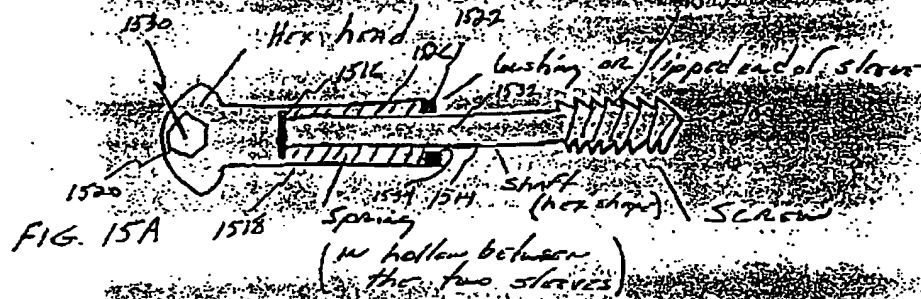 1530
Hex head
1522
1516
1526
bushing or lipped end of sleeve
1532
1520
1518
Spring
1534
1514
shaft
(hex shape)
SCREW
FIG. 15A
(in hollow between
the two sleeves)